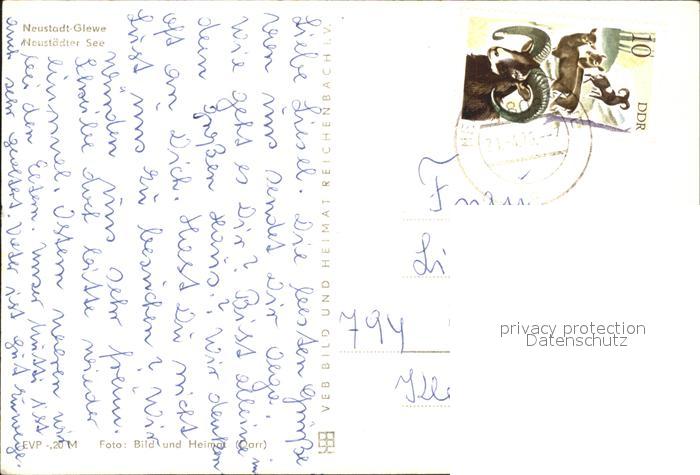 Neustadt-Glewe
Neustädter See
Liebe Liesel. Die besten Grüße
von uns sendet Dir Olga.
Wie geht es Dir? Bist alleine in
dem großen Haus? Wir denken
oft an Dich. Hast Du nicht
Lust uns zu besuchen? Wir
würden uns sehr freun.
Schreibe doch bitte wieder
einmal. Ostern waren wir
bei den Eltern. Unser Mutti ist
auch sehr Vater ist gut
VEB BILD UND HEIMAT REICHENBACH I. V.
EVP -,20 M Foto: Bild und Heimat (Darr)
10
DDR
Frau
Li
794
privacy protection
Datenschutz